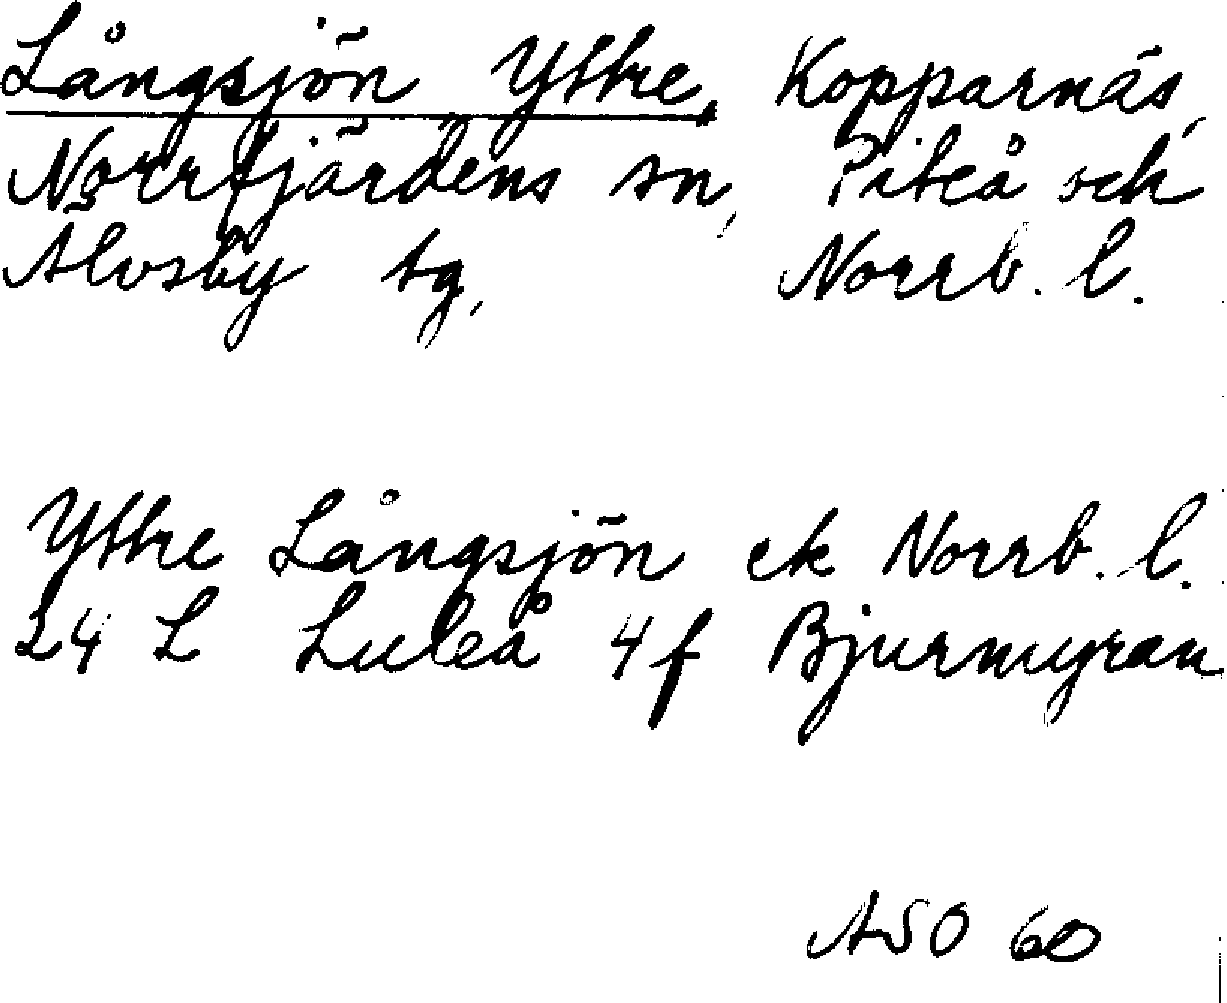 Långsjön Yttre, Kopparnäs,
Norrfjärdens sn, Piteå och
Älvsby tg, Norrb. l.
Yttre Långsjön ek Norrb. l.
24 L Luleå 4f Bjurmyran
ASO 60